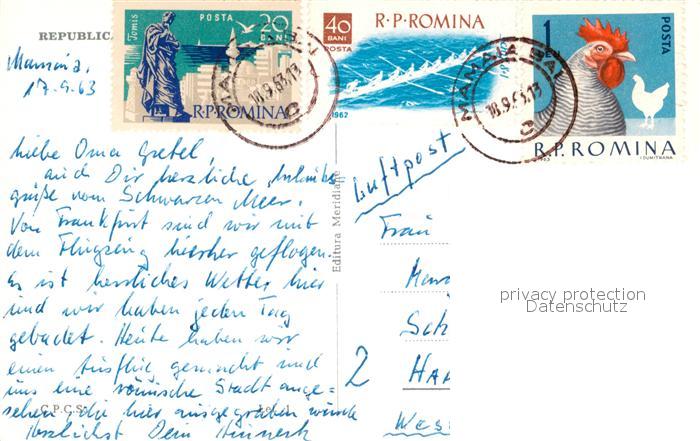 REPUBLICA
Tomis
POSTA
20
BANI
R.P.ROMINA
40
BANI
POSTA
R·P·ROMINA
1962
1
POSTA
R.P. ROMINA
I.DUMITRANA
MAMAIA BAI
18.9.63.13
MAMAIA BAI
18.9.63.13
Mamaia,
17.9.63
Liebe Oma Gretel,
auch Dir herzliche Urlaubs
grüße vom Schwarzen Meer.
Von Frankfurt sind wir mit
dem Flugzeug hierher geflogen.
Es ist herrliches Wetter hier
und wir haben jeden Tag
gebadet. Heute haben wir
einen Ausflug gemacht und
uns eine römische Stadt ange=
sehen, die hier ausgegraben wurde
Herzlichst Dein Hinnerk
C.P.C.S.
Editura Meridiane
Luftpost
Frau
Sch
2 HA
WES
privacy protection
Datenschutz